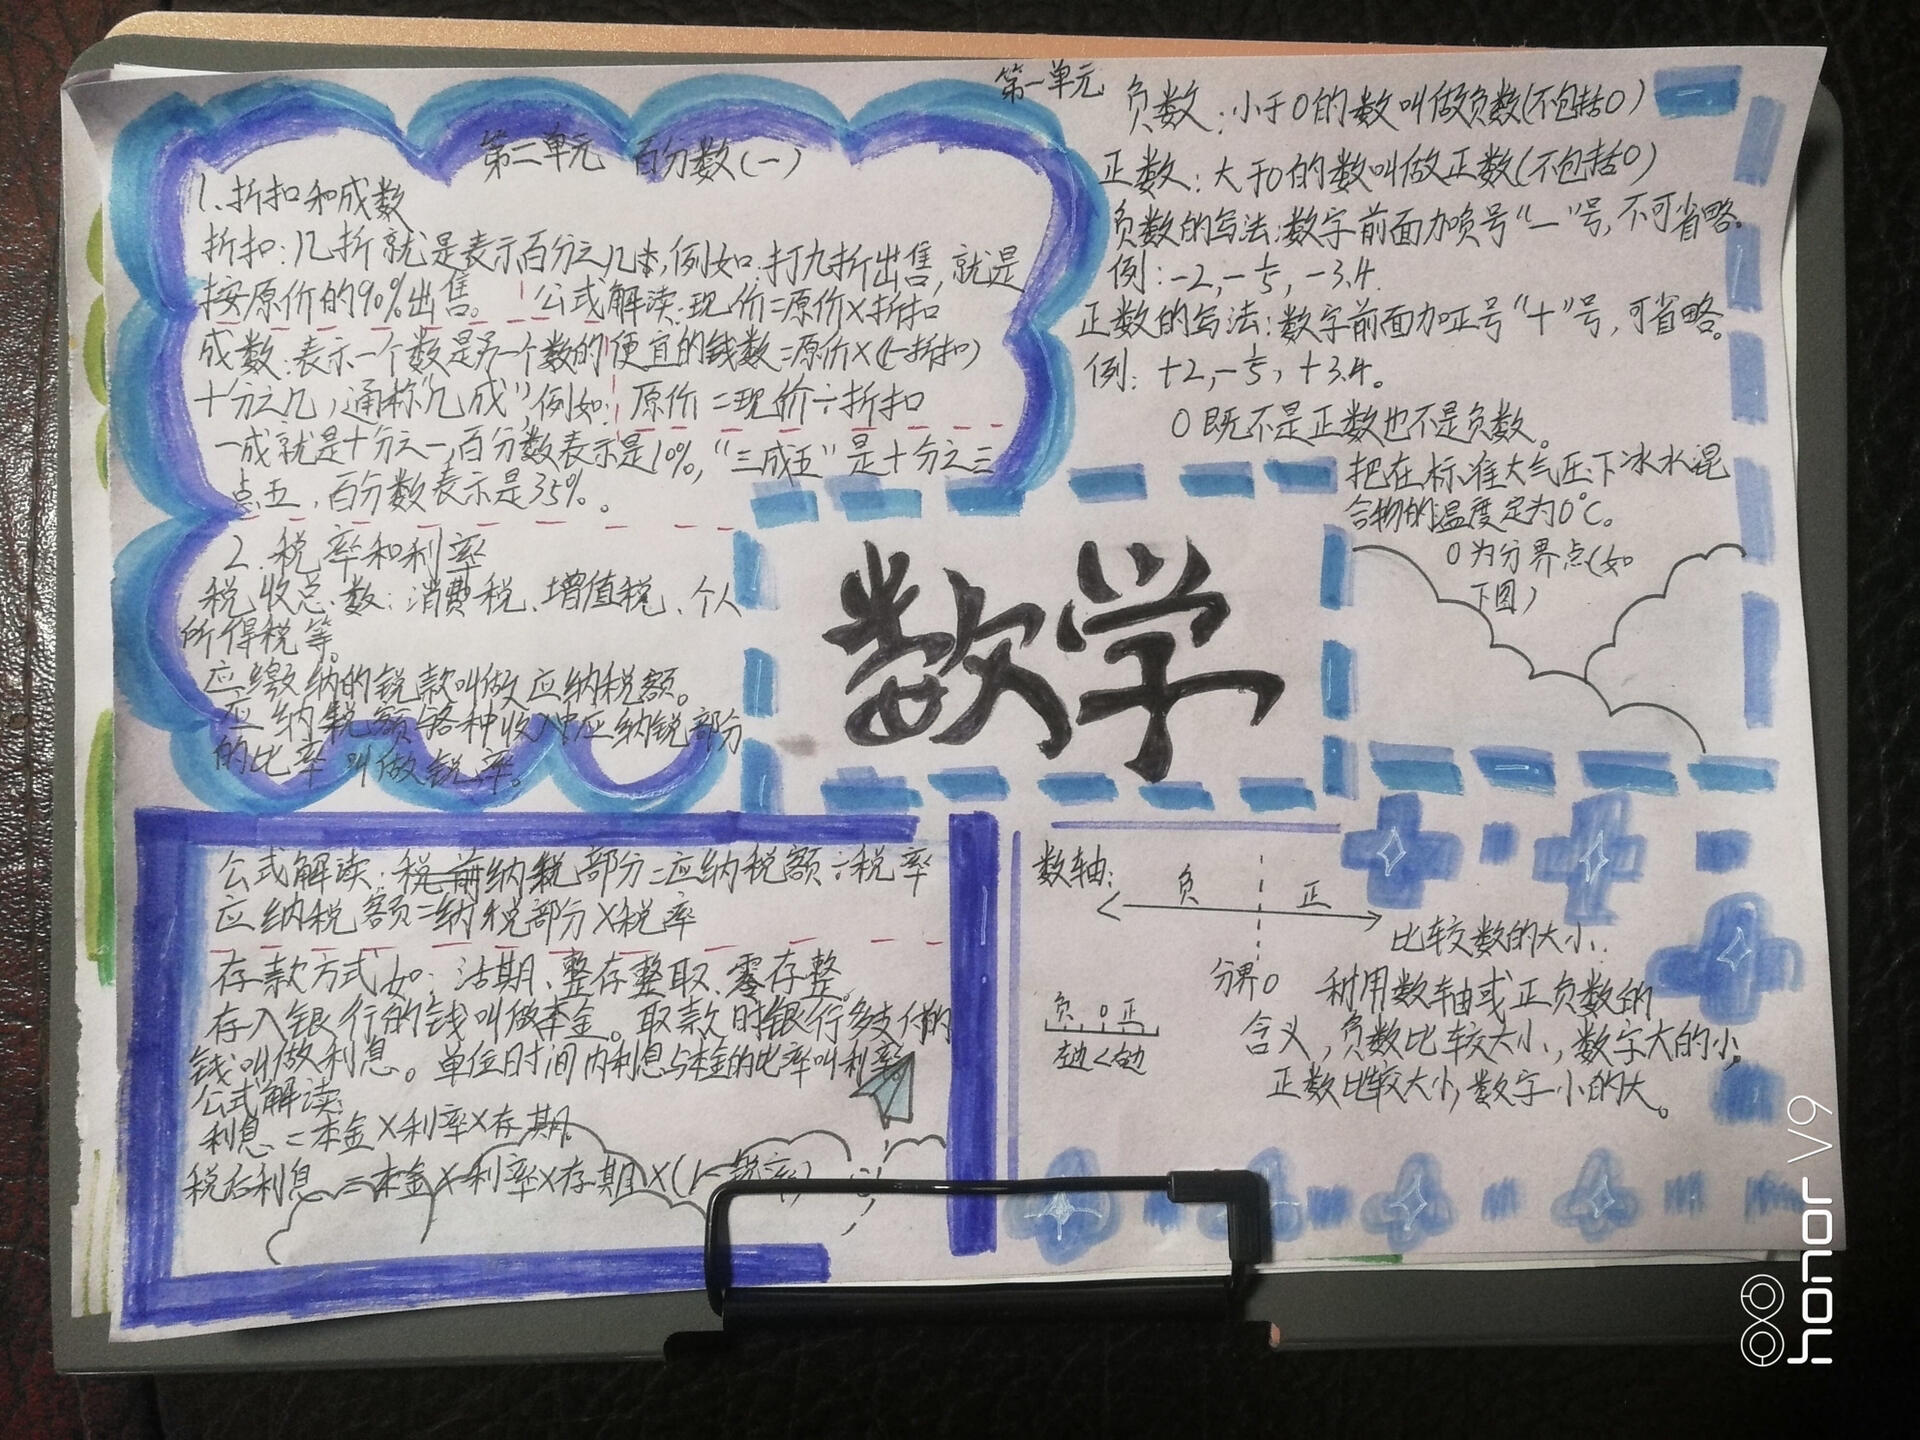 第二单元 百分数(一)
1、折扣和成数
折扣:几折就是表示百分之几,例如:打九折出售,就是
按原价的90%出售。
公式解读:现价=原价×折扣
便宜的钱数=原价×(1-折扣)
原价=现价÷折扣
成数:表示一个数是另一个数的
十分之几,通称"几成",例如:
一成就是十分之一,百分数表示是10%,"三成五"是十分之三
点五,百分数表示是35%。
2.税率和利率
税收总数:消费税、增值税、个人
所得税等。
应缴纳的税款叫做应纳税额。
应纳税额与各种收入中应纳税部分
的比率叫做税率。
第一单元
负数:小于0的数叫做负数(不包括0)
正数:大于0的数叫做正数(不包括0)
负数的写法:数字前面加负号"-"号,不可省略。
例:-2,-1/5,-3.4.
正数的写法:数字前面加正号"+"号,可省略。
例:+2,-1/5,+3.4。
0既不是正数也不是负数。
把在标准大气压下冰水混
合物的温度定为0℃。
0为分界点(如
下图)
数学
公式解读:纳税部分=应纳税额÷税率
应纳税额=纳税部分×税率
存款方式如:活期、整存整取、零存整。
存入银行的钱叫做本金。取款时银行多支付的
钱叫做利息。单位时间内利息与本金的比率叫利率。
公式解读:
利息=本金×利率×存期。
税后利息=本金×利率×存期×(1-税率)
数轴:
负 正
分界0
负 0 正
左边<右边
比较数的大小:
利用数轴或正负数的
含义,负数比较大小,数字大的小,
正数比较大小,数字小的大。
honor V9